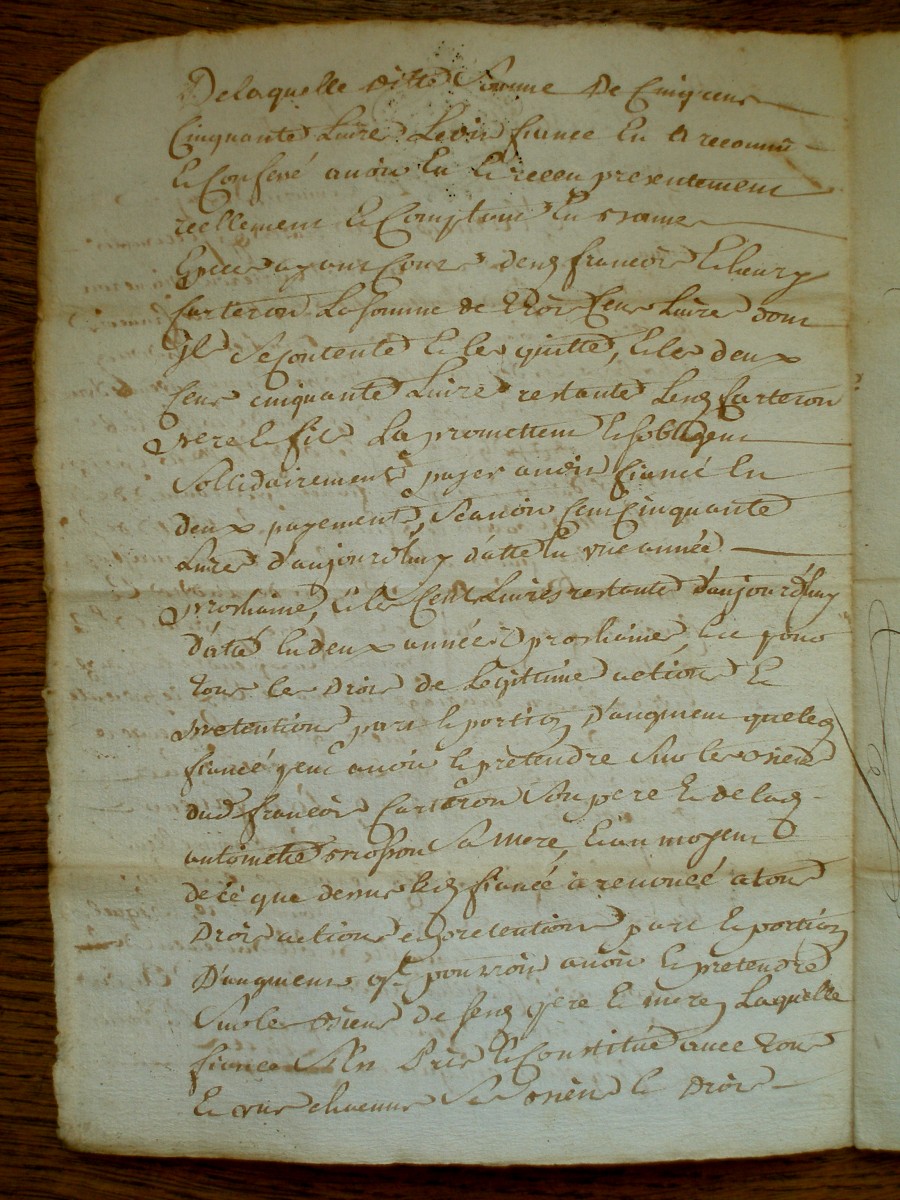 De laquelle ditte Somme De Cinq cens
Cinquante Livres Ledit fiancé En a reconnu
Et Confessé avoir Eu Et receu presentement
reellement Et Comptant En bonnes
Especes ayant Cours desd françois Et henry
Carteron La somme de Trois Cens Livres dont
Jl Se Contente Et les quitte, Et les deux
Cens cinquante Livres restante Lesd Carteron
pere Et fils La promettent Et sobligent
Sollidairement payer audit fiancé En
deux payements, Scavoir Cent Cinquante
Livres d'aujourd'huy datte En une année
prochaine, Et les Cent Livres restante d'aujourd'huy
date En deux années prochaines Et pour
Tous les Droits de Legittime actions Et
pretentions part Et portion D'augment que led
fiancé peut avoir Et pretendre Sur les biens
dud françois Carteron Son pere Et de lad
antoinette Mosson Sa Mere, Et au moyens
de ce que dessus led fiancé à renoncé a tous
Droits actions et pretentions part Et portion
D'augment ql pourroit avoir Et pretendre
Sur les biens de sesd pere Et mere, Laquelle
fiancée S'est Et Constitué avec Tous
Et uns chacuns Ses biens Et Droits